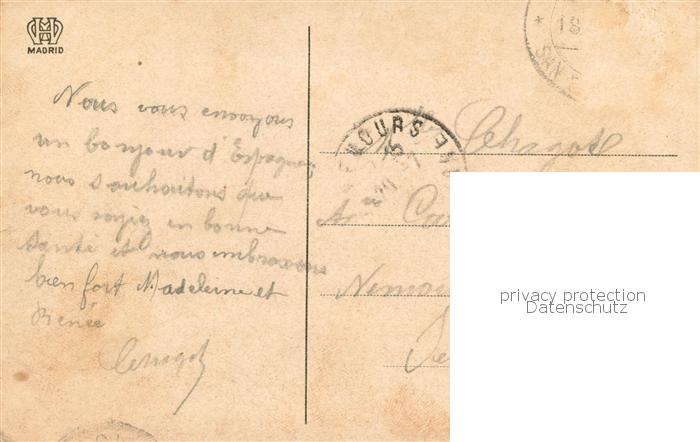 MADRID
Nous vous envoyons
un bonjour d'Espagne,
nous souhaitons que
vous soyez en bonne
santé et vous embrassons
bien fort Madeleine et
Renée
Chagot
SAN
NEMOURS
Chagot
Nemou
privacy protection
Datenschutz